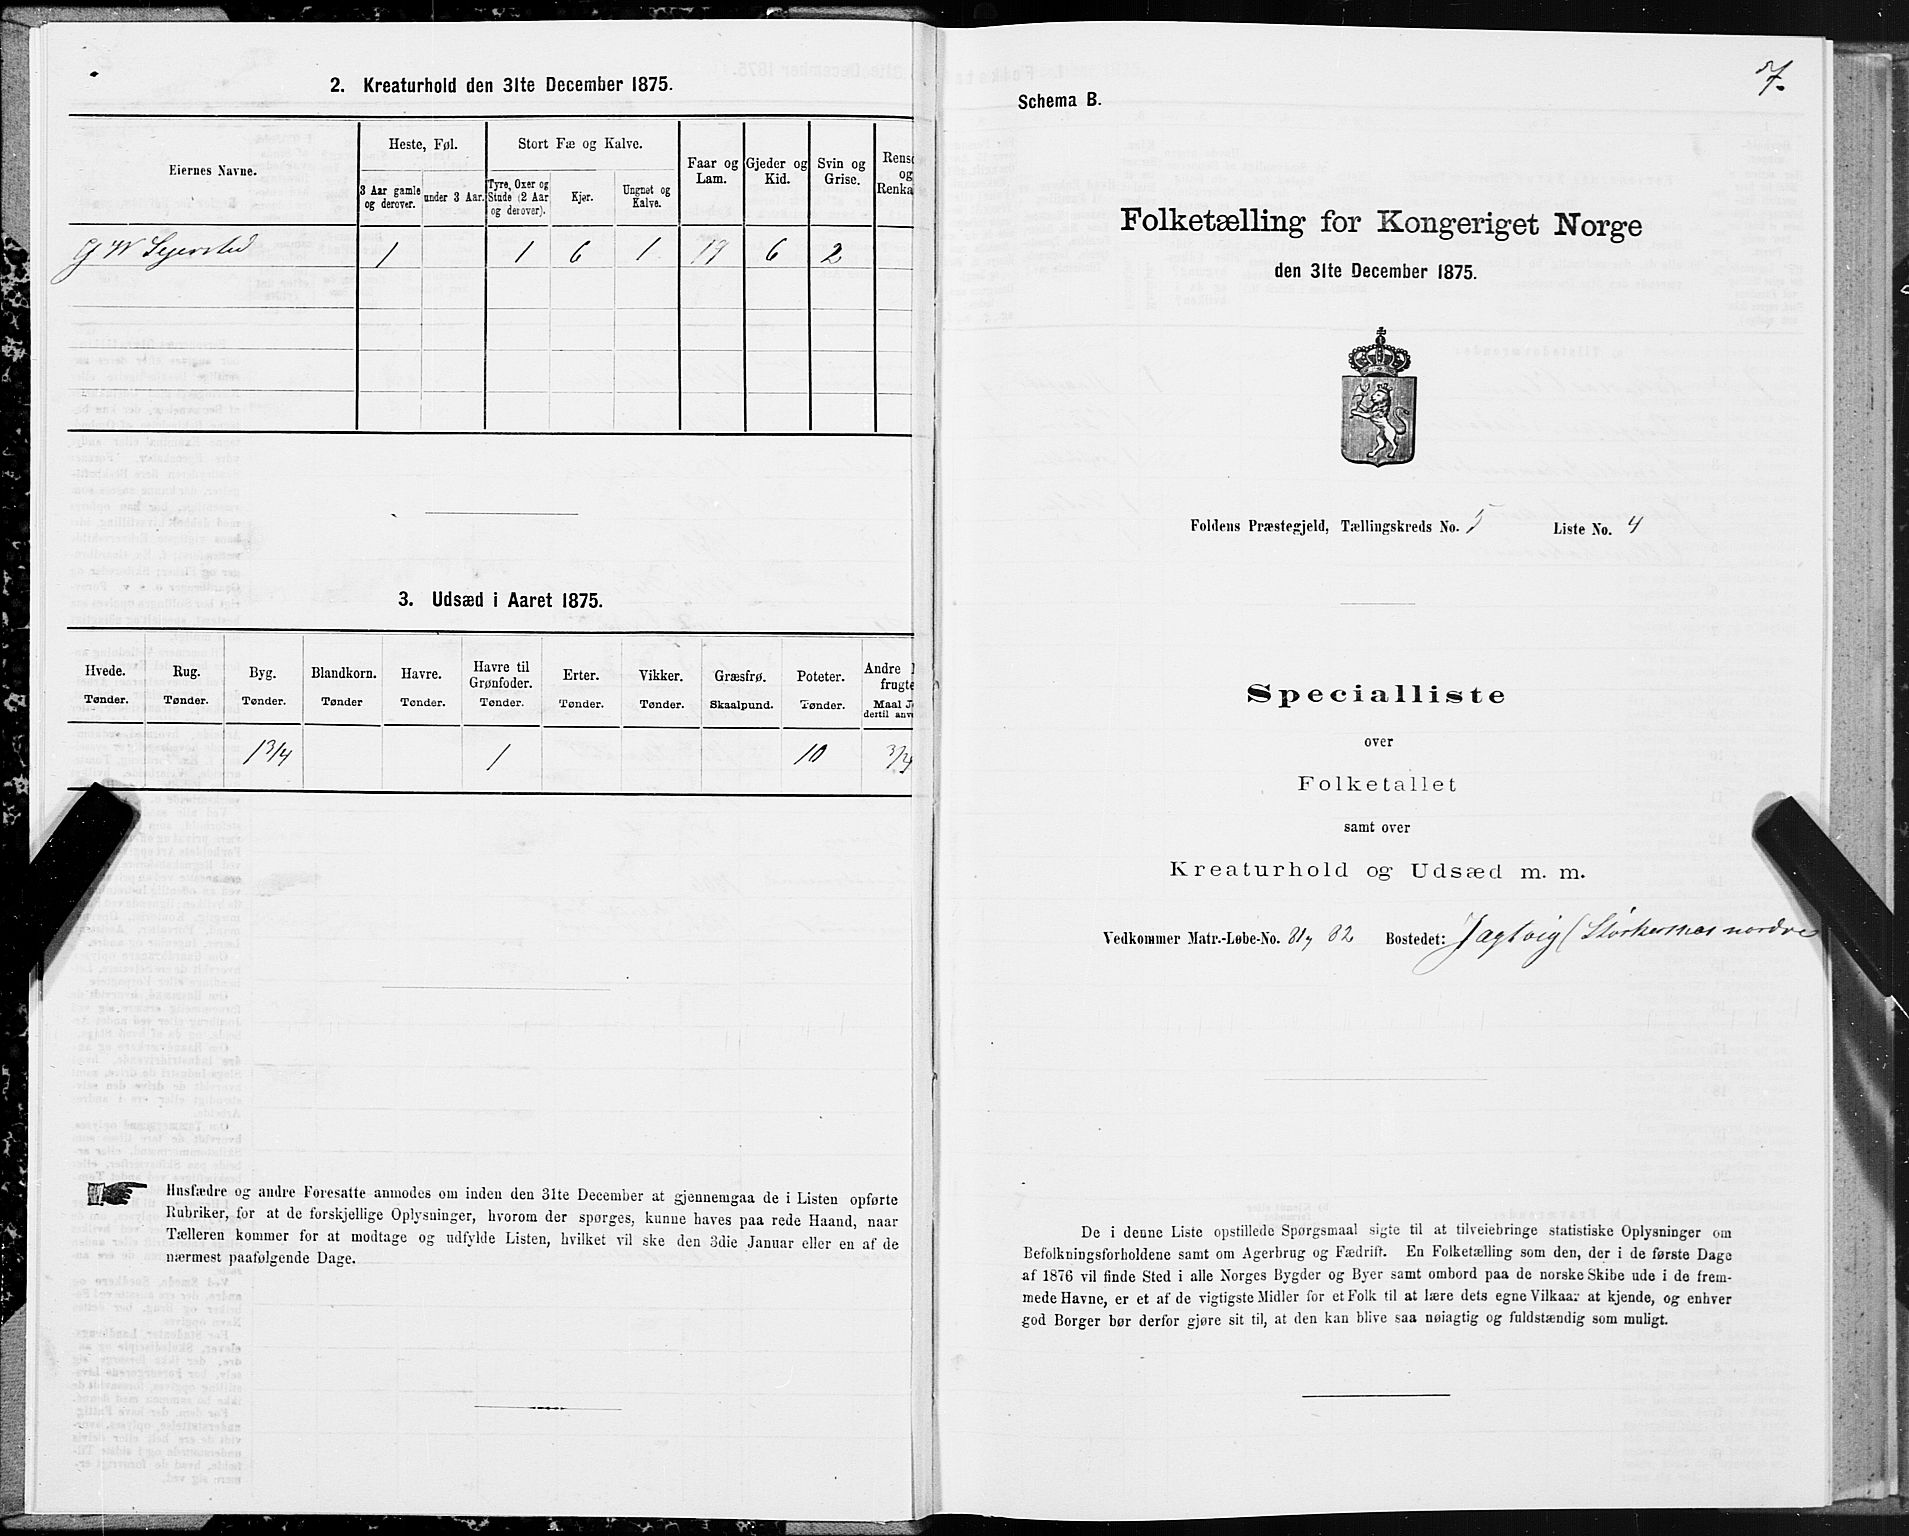 2. Kreaturhold den 31te December 1875.
Eiernes Navne.
Heste, Føl.
Stort Fæ og Kalve.
3 Aar gamle og derover.
under 3 Aar.
Tyre, Oxer og Stude (2 Aar og derover).
Kjør.
Ungnøt og Kalve.
Faar og Lam.
Gjeder og Kid.
Svin og Grise.
Rensd
og
Renka
G W Sejersted 1 1 6 1 19 6 2
3. Udsæd i Aaret 1875.
Hvede. Rug. Byg. Blandkorn. Havre. Havre til Grønfoder. Erter. Vikker. Græsfrø. Poteter. Andre
frugte
Tønder. Tønder. Tønder. Tønder Tønder. Tønder. Tønder. Tønder. Skaalpund. Tønder. Maal J
dertil anv
1 3/4 1 10 3/4
Husfædre og andre Foresatte anmodes om inden den 31te December at gjennemgaa de i Listen opførte
Rubriker, for at de forskjellige Oplysninger, hvorom der spørges, kunne haves paa rede Haand, naar
Tælleren kommer for at modtage og udfylde Listen, hvilket vil ske den 3die Januar eller en af de
nærmest paafølgende Dage.
7.
Schema B.
Folketælling for Kongeriget Norge
den 31te December 1875.
Foldens Præstegjeld, Tællingskreds No. 5 Liste No. 4
Specialliste
over
Folketallet
samt over
Kreaturhold og Udsæd m. m.
Vedkommer Matr.-Løbe-No. 81, 82 Bostedet: Jagtvig (Storkersnes nordre
De i denne Liste opstillede Spørgsmaal sigte til at tilveiebringe statistiske Oplysninger om
Befolkningsforholdene samt om Agerbrug og Fædrift. En Folketælling som den, der i de første Dage
af 1876 vil finde Sted i alle Norges Bygder og Byer samt ombord paa de norske Skibe ude i de frem-
mede Havne, er et af de vigtigste Midler for et Folk til at lære dets egne Vilkaar at kjende, og enhver
god Borger bør derfor gjøre sit til, at den kan blive saa nøiagtig og fuldstændig som muligt.